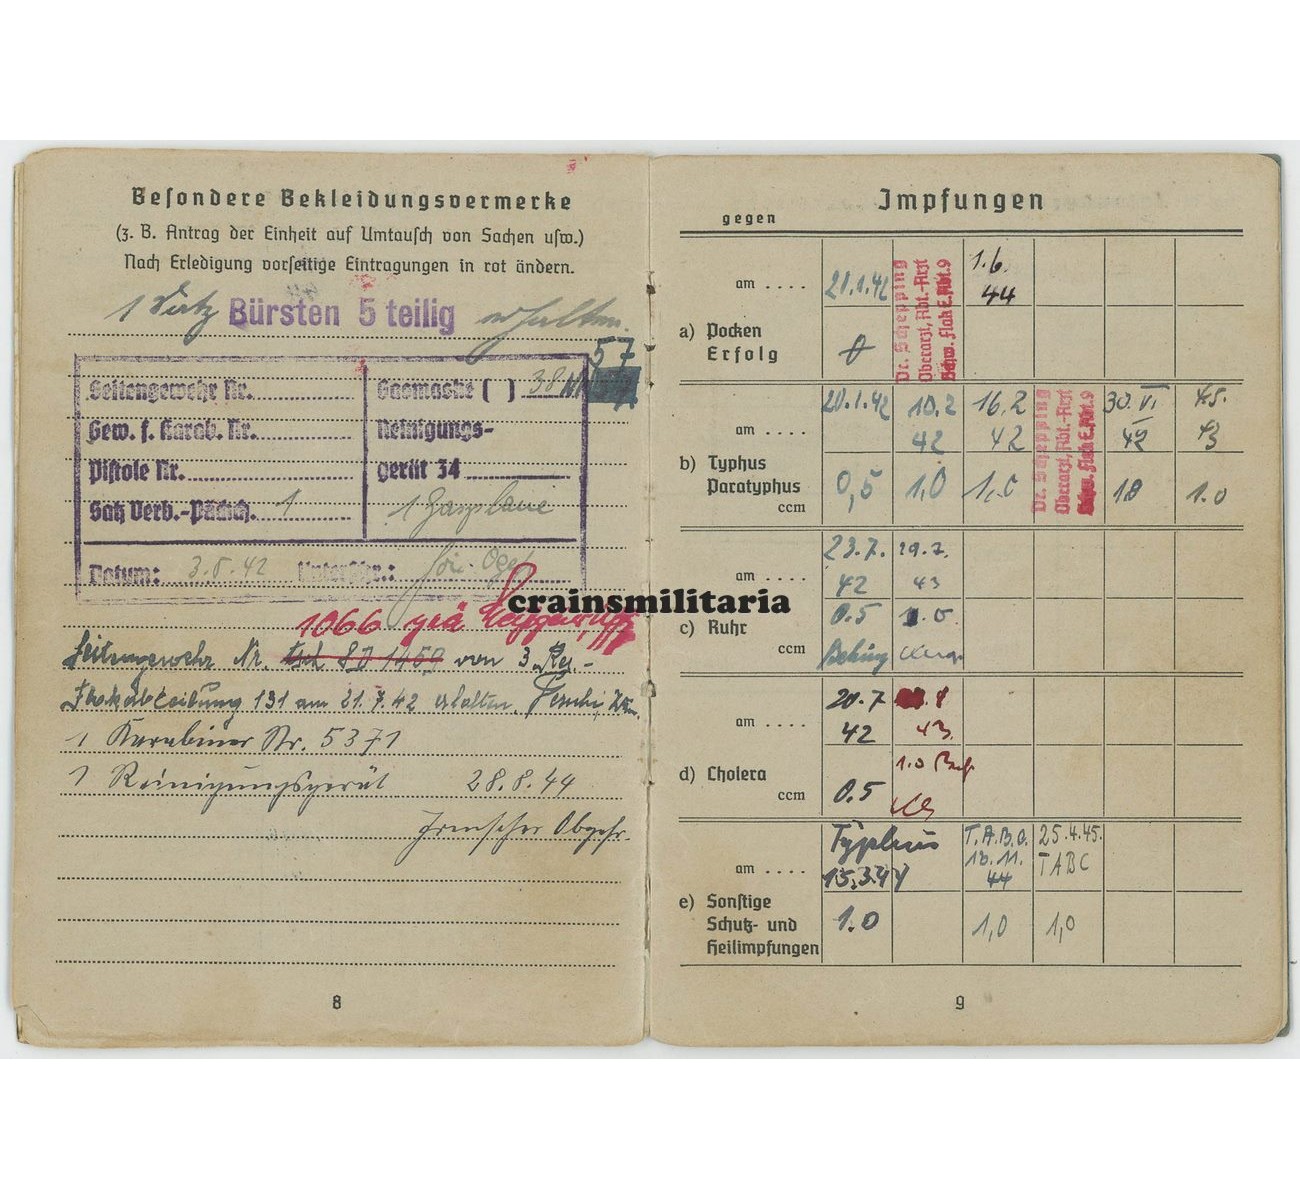 Besondere Bekleidungsvermerke
(z. B. Antrag der Einheit auf Umtausch von Sachen usw.)
Nach Erledigung vorseitige Eintragungen in rot ändern.
1 Satz Bürsten 5 teilig erhalten.
57
Seitengewehr Nr.
Gasmaske ( ) 38
Gew. s. Karab. Nr.
Reinigungs-
Pistole Nr.
gerät 34
Satz Verb.-Päckch. 1
1 Gasplane
Datum: 3.8.42 Unterschr.:
1066
Seitengewehr Nr. von 3. Res.-
Flakabteilung 131 am 21.7.42 erhalten.
1 Karabiner Nr. 5371
1 Reinigungsgerät 28.8.44
Irmscher Obgefr.
8
Impfungen
gegen
a) Pocken
Erfolg
am . . . .
21.1.42
1.6.
44
Dr. Schepping
Oberarzt, Abt.-Arzt
Schw. Flak E. Abt. 9
b) Typhus
Paratyphus
ccm
am . . . .
20.1.42 10.2 42 16.2 42 30.VI 42 43
0,5 1,0 1,0 1.0 1.0
Dr. Schepping
Oberarzt, Abt.-Arzt
Schw. Flak E. Abt. 9
c) Ruhr
ccm
am . . . .
23.7. 42 19.7. 43
0.5 1.0
Behring
d) Cholera
ccm
am . . . .
20.7 42 8 43
0.5 1.0
e) Sonstige
Schutz- und
Heilimpfungen
am . . . .
Typhus 15.3.44 T.A.B.C. 44 25.4.45. TABC
1.0 1,0 1,0
9
crainsmilitaria